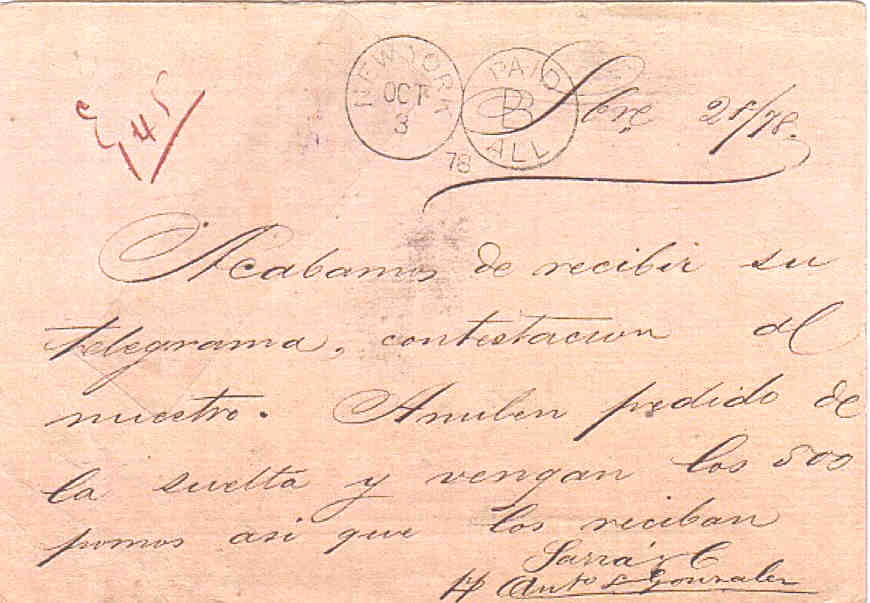 NEW YORK
OCT
3
78
PAID
B
ALL
Sbre 28/78.
Acabamos de recibir su
telegrama, contestacion al
nuestro. Anulen pedido de
la suelta y vengan los 500
pomos asi que los reciban
Sarrá y C
Anto L Gonzalez